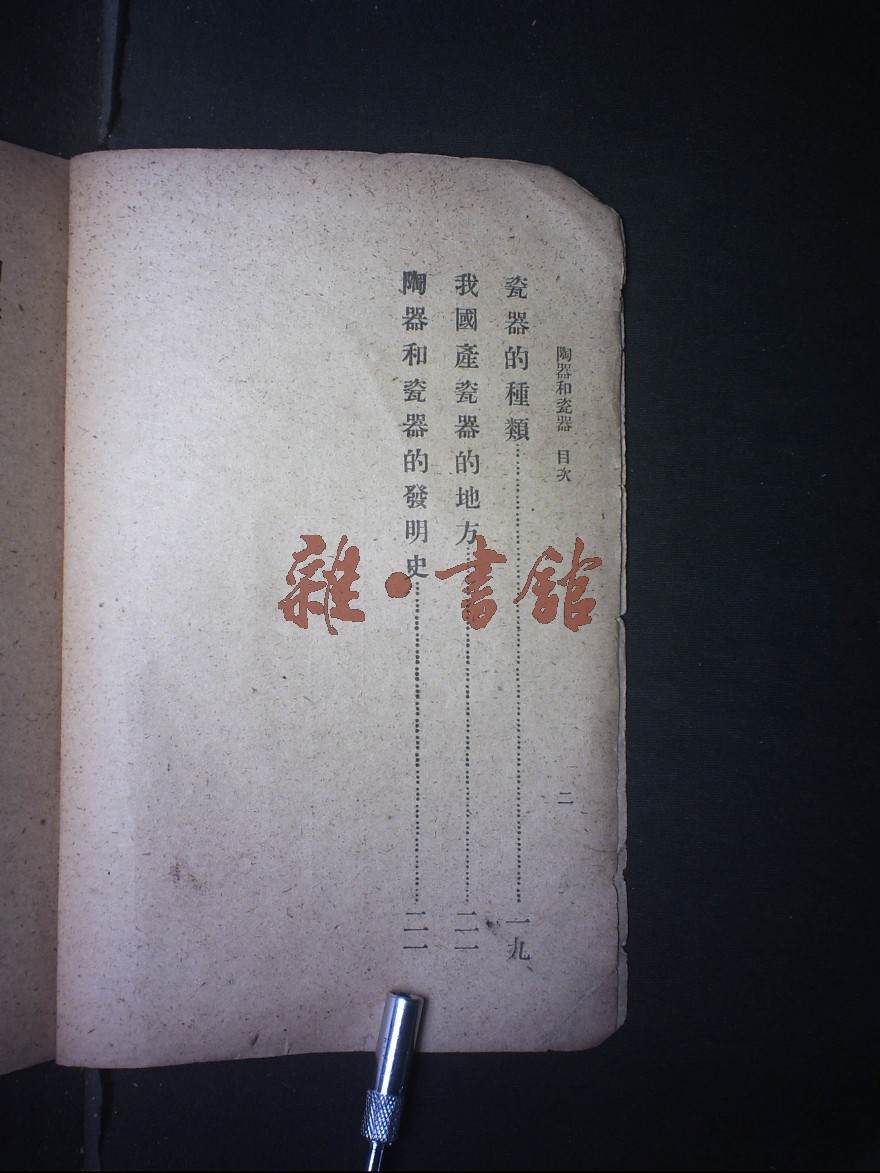 陶器和瓷器 目次
二
瓷器的種類……一九
我國產瓷器的地方……二一
陶器和瓷器的發明史……二一
雜·書館